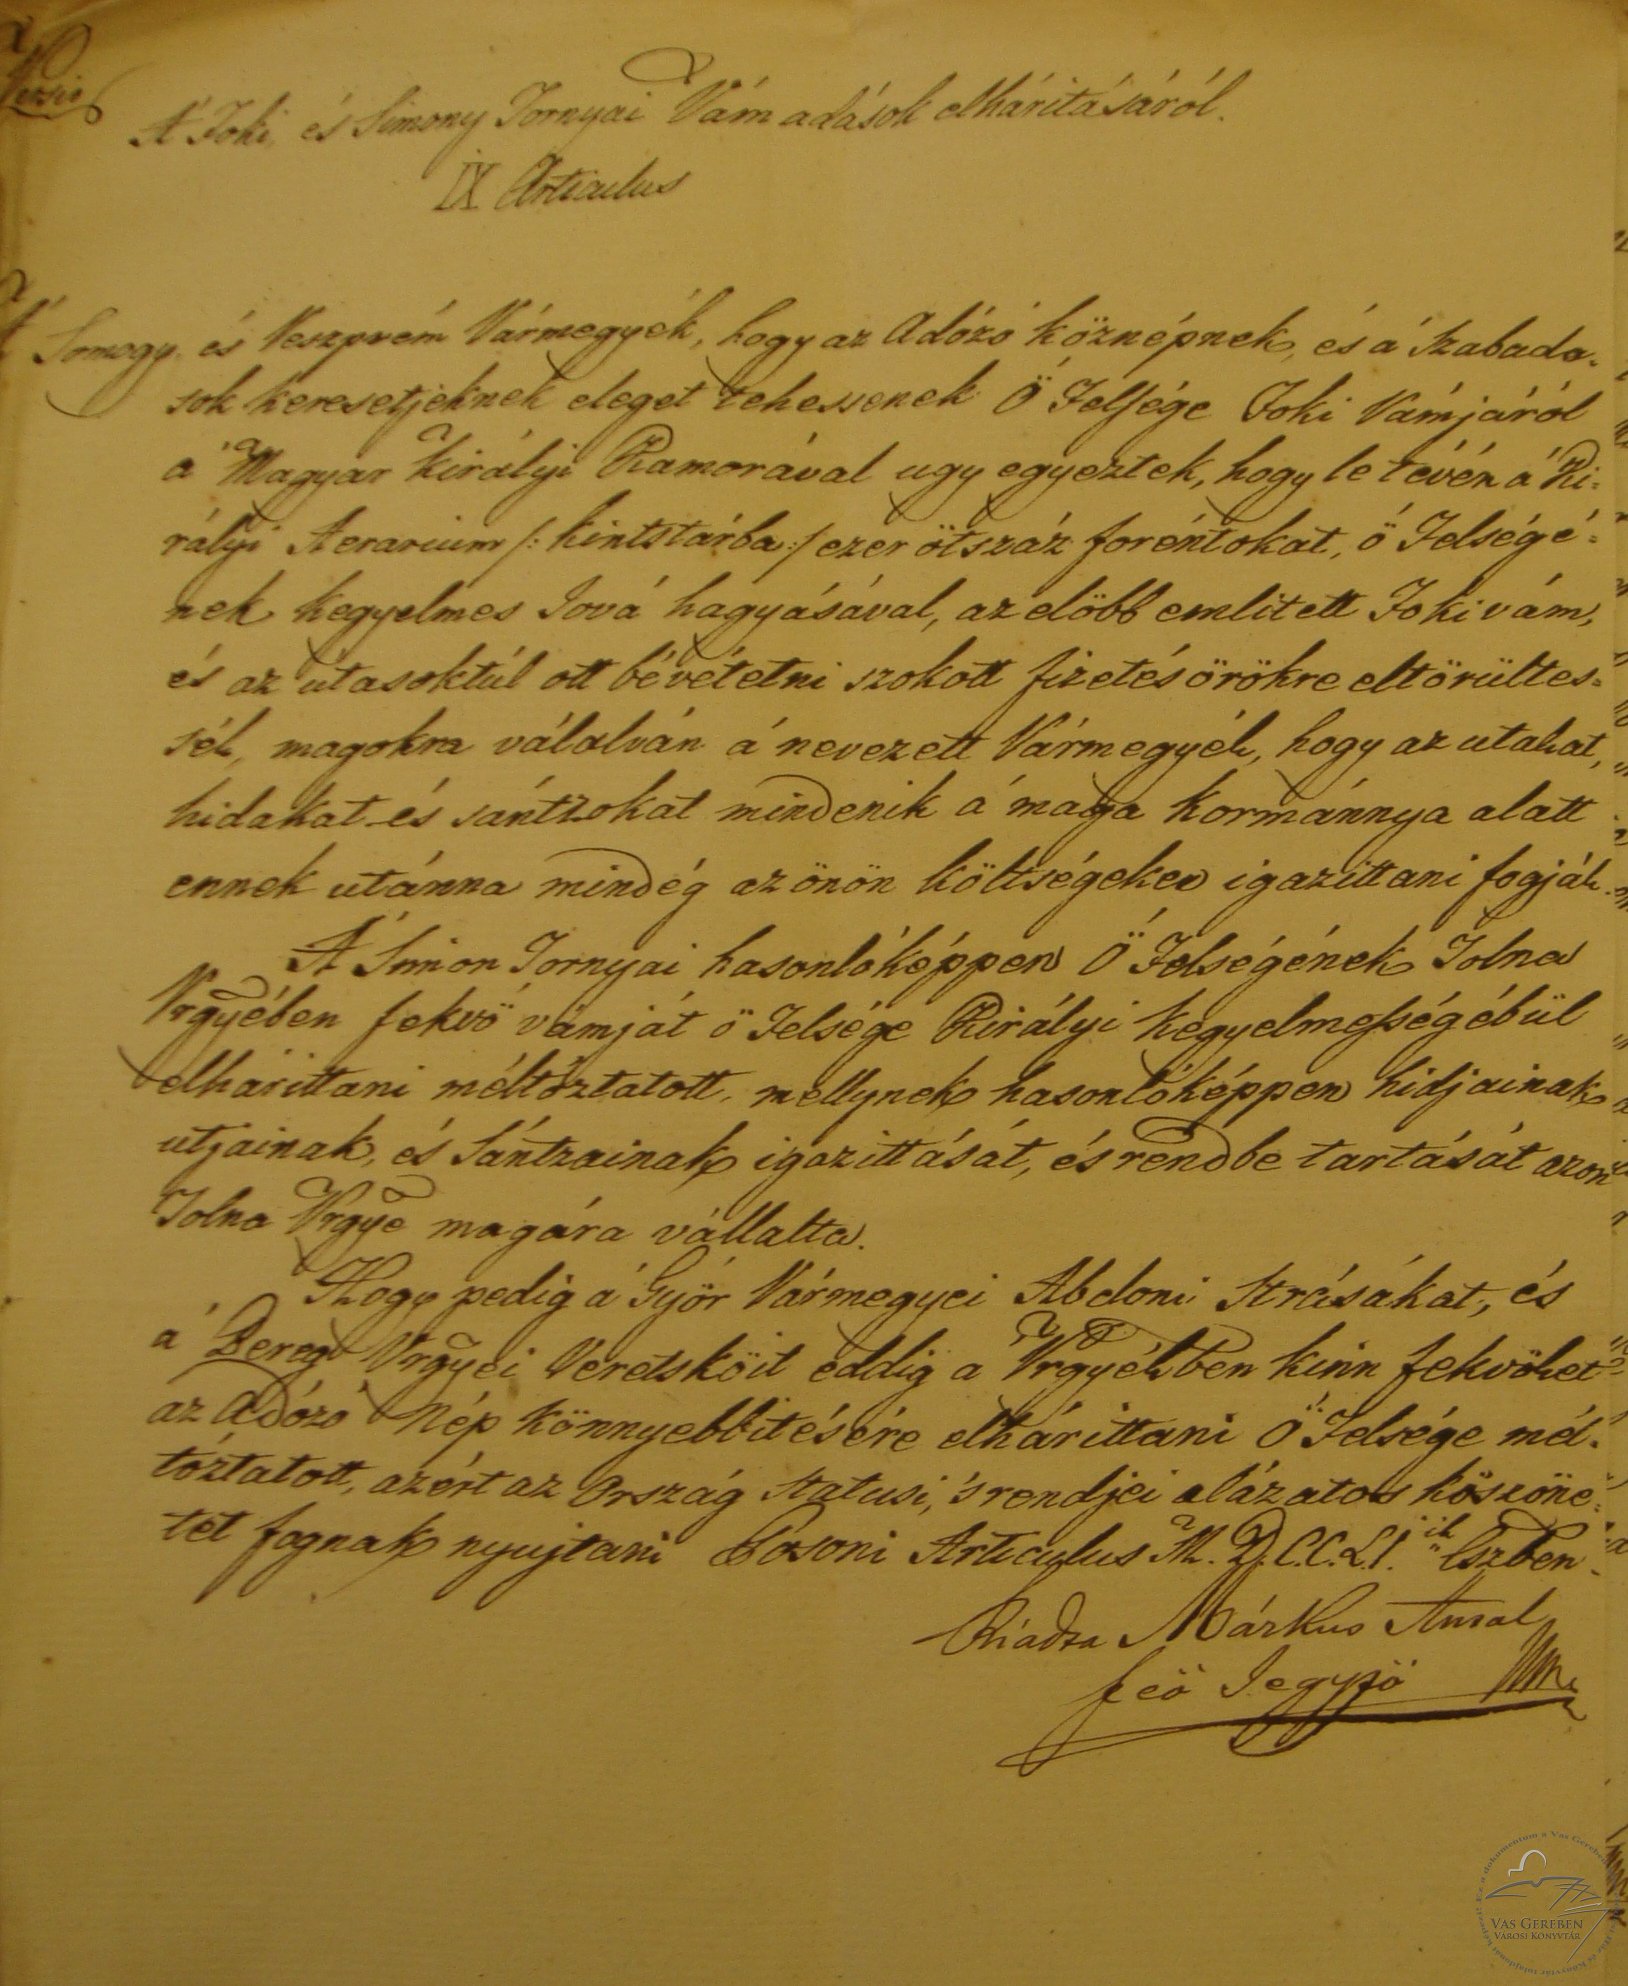 Versio
A' Foki, és Simony Tornyai Vám adások elháritásáról.
IX Articulus
A' Somogy és Veszprém Vármegyék, hogy az Adózó köznépnek, és á Szabado-
sok keresetjeknek eleget tehessenek Ö Felsége Foki Vámjáról
a' Magyar Királyi Kamorával ugy egyeztek, hogy le tévén á Ki-
rályi Aerarium /: kintstárba :/ ezer ötszáz foréntokat, ö Felségé-
nek kegyelmes Jová hagyásával, az elöbb emlitett Foki vám,
és az útasoktúl ott bévétetni szokott fizetés örökre eltörültes-
sék, magokra válalván á nevezett Vármegyék, hogy az utakat,
hidakat és sántzokat mindenik á maga kormánnya alatt
ennek utánna mindég az önön költségeken igazittani fogják.
A' Simon Tornyai hasonlóképpen Ö Felségének Tolna
Vrgyében fekvö vámját ö Felsége Királyi kegyelmességébül
elhárittani méltóztatott, mellynek hasonlóképpen hidjainak
utjainak, és Sántzainak igazittását, és rendbe tartását azon
Tolna Vrgye magára vállalta.
Hogy pedig á Györ Vármegyei Abdoni Strásákat, és
a' Bereg Vrgyei Veretsköit eddig a Vrgyékben kinn fekvöket
az Adózó Nép könnyebbitésére elhárittani Ö Felsége mél-
tóztatott, azért az Ország Statusi, 's rendjei alázatos köszöne-
tet fognak nyujtani Posoni Articulus M.D.C.C.L.I. ik Eszben.
Kiadta Márkus Antal
feö Jegyzö
VAS GEREBEN
VÁROSI KÖNYVTÁR